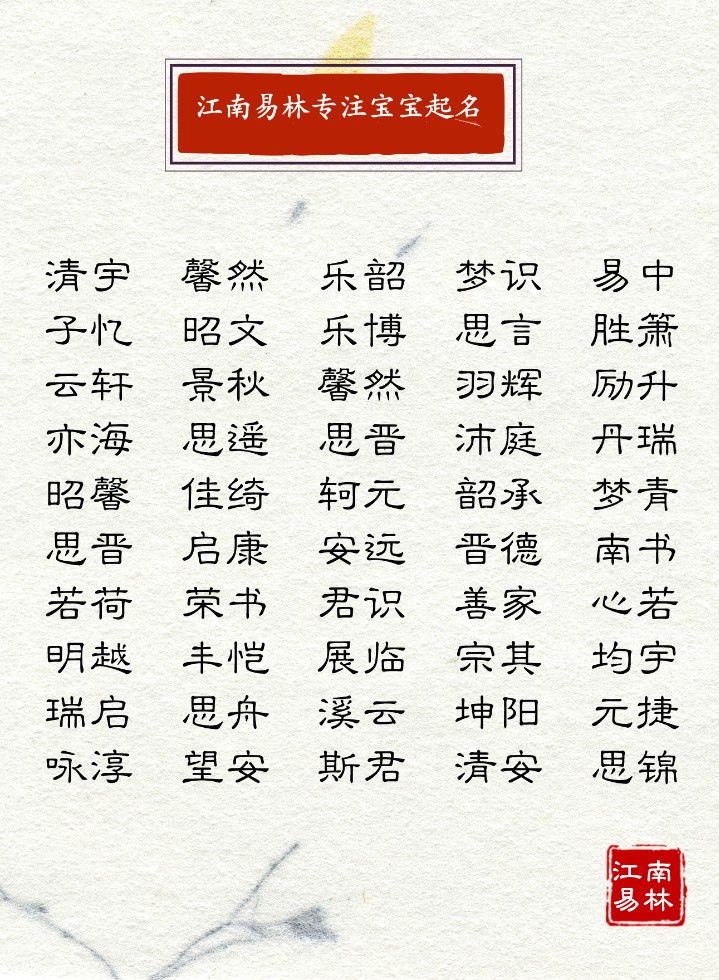 江南易林专注宝宝起名
清宇 馨然 乐韶 梦识 易中
子忆 昭文 乐博 思言 胜箫
云轩 景秋 馨然 羽辉 励升
亦海 思遥 思晋 沛庭 丹瑞
昭馨 佳绮 轲元 韶承 梦青
思晋 启康 安远 晋德 南书
若荷 荣书 君识 善家 心若
明越 丰恺 展临 宗其 均宇
瑞启 思舟 溪云 坤阳 元捷
咏淳 望安 斯君 清安 思锦
江南
易林